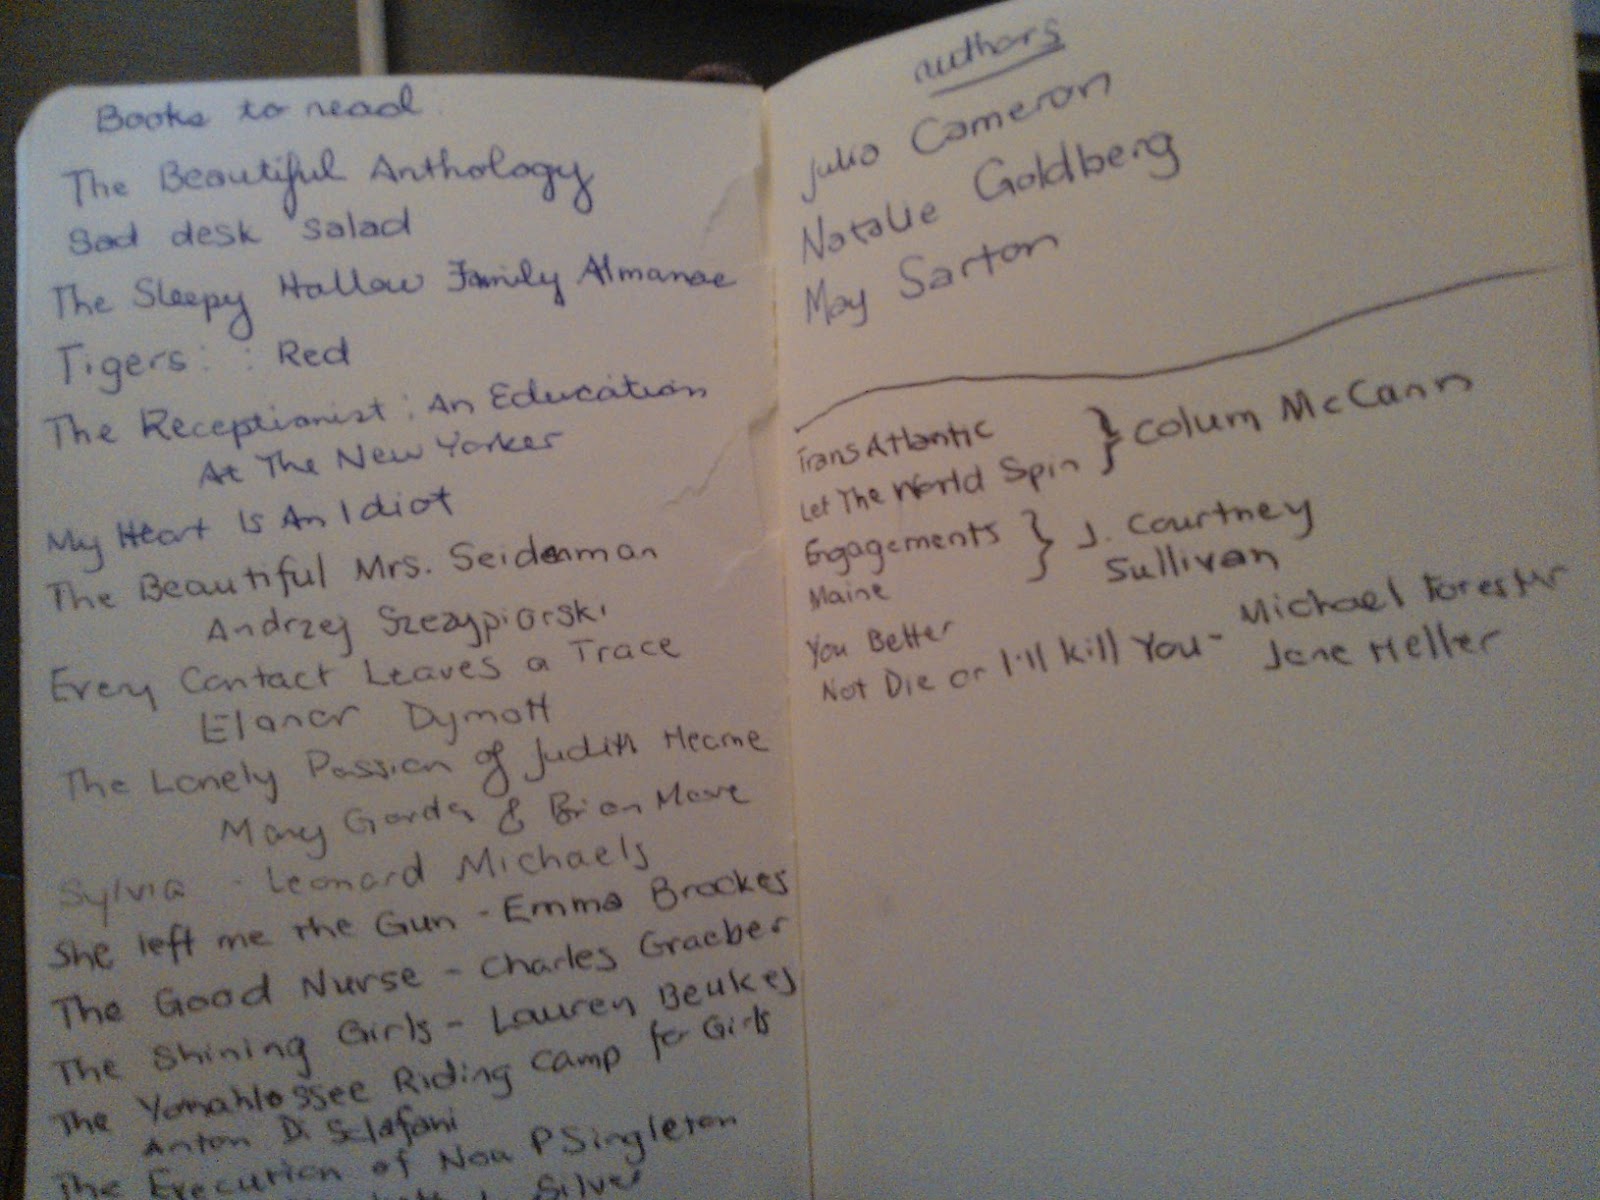 Books to read
The Beautiful Anthology
Sad desk salad
The Sleepy Hollow Family Almanac
Tigers: : Red
The Receptionist: An Education
At The New Yorker
My Heart Is An Idiot
The Beautiful Mrs. Seidenman
Andrzej Szczypiorski
Every Contact Leaves a Trace
Elanor Dymott
The Lonely Passion of Judith Hearne
Mary Gordon & Brian Moore
Sylvia - Leonard Michaels
She left me the Gun - Emma Brockes
The Good Nurse - Charles Graeber
The Shining Girls - Lauren Beukes
The Yonahlossee Riding Camp for Girls
Anton Di Sclafani
The Execution of Noa P Singleton
Silver
authors
Julia Cameron
Natalie Goldberg
May Sarton
TransAtlantic
Let The World Spin } Colum McCann
Engagements
Maine } J. Courtney
Sullivan
You Better
Not Die or I'll Kill You - Michael Forester
Jane Heller